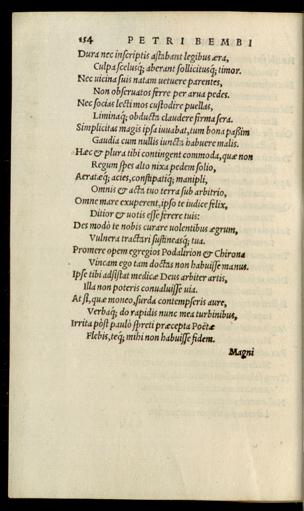 154 PETRI BEMBI
Dura nec inscriptis astabant legibus æra,
Culpa scelusq; aberant sollicitusq; timor.
Nec uicina suis natam uetuere parentes,
Non obseruatos ferre per arua pedes.
Nec socias lecti mos custodire puellas,
Liminaq; obducta claudere firma sera.
Simplicitas magis ipsa iuuabat, tum bona passim
Gaudia cum nullis iuncta habuere malis.
Hæc & plura tibi contingent commoda, quæ non
Regum spes alto nixa pedem solio,
Aerataeq; acies, constipatiq; manipli,
Omnis & acta tuo terra sub arbitrio,
Omne mare exuperent, ipso te iudice felix,
Ditior & uotis esse ferere tuis:
Des modò te nobis curare uolentibus ægrum,
Vulnera tractari sustineasq; tua.
Promere opem egregios Podalirion & Chirona
Vincam ego tam doctas non habuisse manus.
Ipse tibi adsistat medicæ Deus arbiter artis,
Illa non poteris conualuisse uia.
At si, quæ moneo, surda contempseris aure,
Verbaq; do rapidis nunc mea turbinibus,
Irrita pòst paulò spreti præcepta Poëtæ
Flebis, teq; mihi non habuisse fidem.
Magni